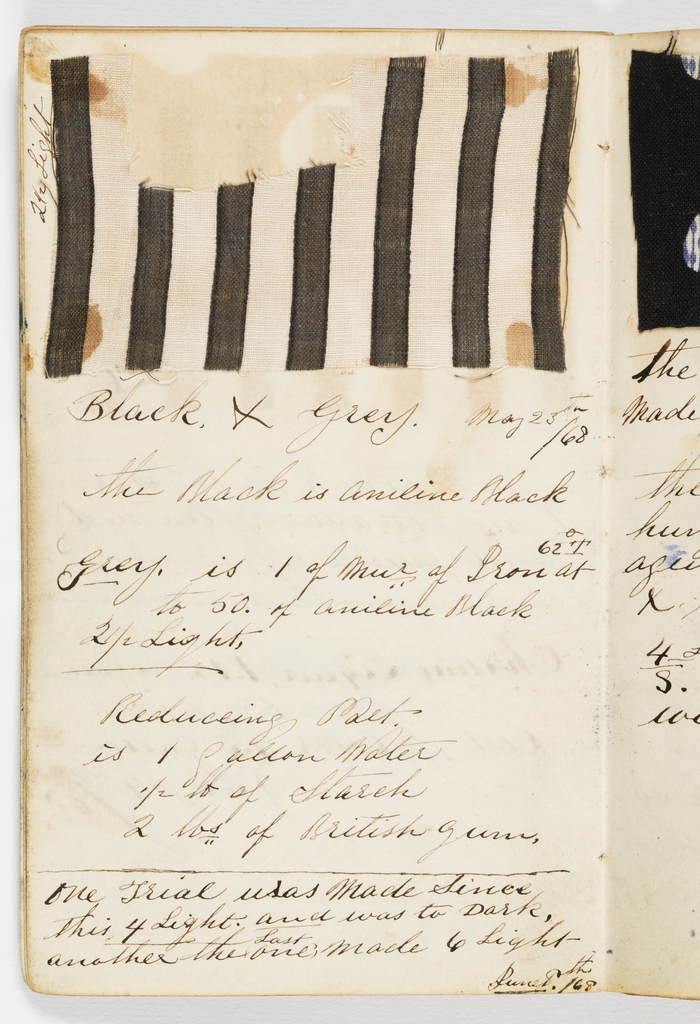 2½ Light
Black. X Grey. May 23th
/68
the Black is aniline Black
62°T
Grey. is 1 of Mur. of Iron at
to 50. of aniline Black
2½ Light,
Reduceing Paet.
is 1 gallon Water
½ lb of Starch
2 lbs of British gum,
One Trial was Made Since
this 4 Light. and was to Dark,
another the Last one, made 6 Light
June 1.th /68
the
Made
the
X
4
8.